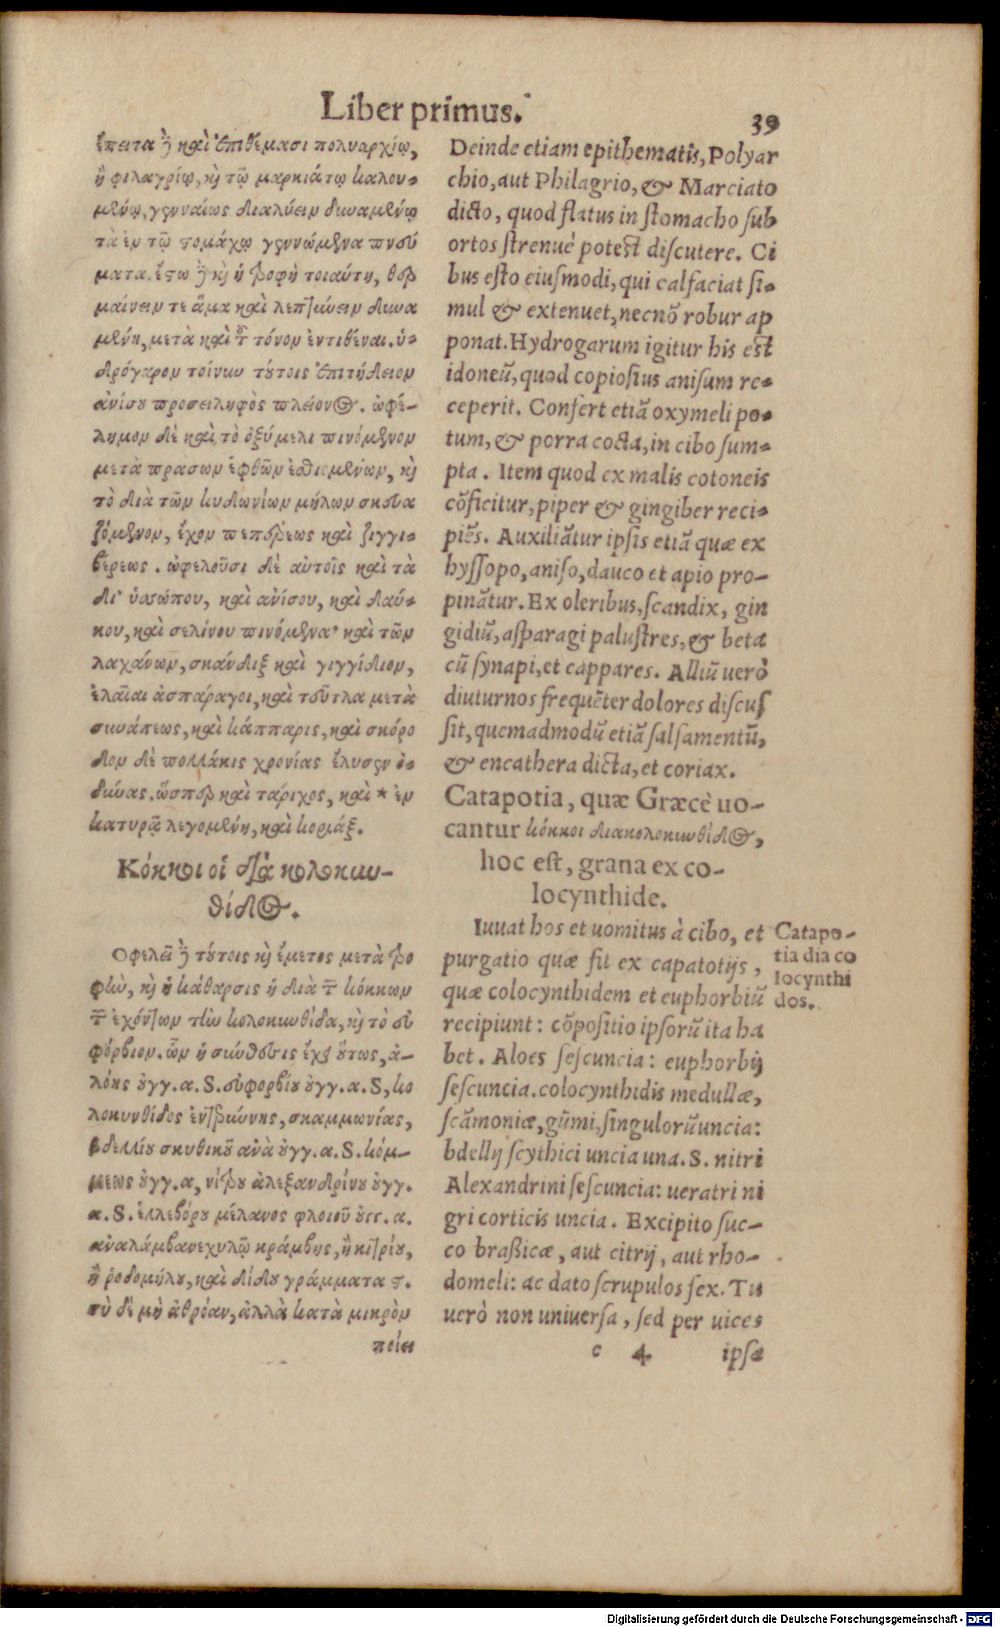 Liber primus.
39
ἔπειτα ἢ καὶ ἐπιθέμασι πολυαρχίῳ,
ἢ φιλαγρίῳ, κỳ τῷ μαρκιάτῳ καλου-
μένῳ, γενναίως διαλύειν δυναμένῳ
τὰ ἐν τῷ στομάχῳ γεννώμενα πνεύ
ματα. ἔστω ἢ κỳ ἡ τροφὴ τοιαύτη, θερ
μαίνειν τε ἅμα καὶ λεπτύνειν δυνα
μένη, μετὰ καὶ τ τόνον ἐντιθέναι. ὑ-
δρόγαρον τοίνυν τούτοις ἐπιτήδειον
ἀνίσου προσειληφὸς πλείονος. ὠφέ-
λιμον δὲ καὶ τὸ ὀξύμελι πινόμενον
μετὰ πράσων ἑφθῶν ἐσθιομένων, κỳ
τὸ διὰ τῶν κυδωνίων μήλων σκευα
ζόμενον, ἔχον πεπέρεως καὶ ζιγγι-
βέρεως. ὠφελοῦσι δὲ αὐτοῖς καὶ τὰ
δι' ὑσώπου, καὶ ἀνίσου, καὶ δαύ-
κου, καὶ σελίνου πινόμενα· καὶ τῶν
λαχάνων, σκάνδιξ καὶ γιγγίδιον,
ἐλαῖαι ἀσπάραγοι, καὶ τεῦτλα μετὰ
σινάπεως, καὶ κάππαρις, καὶ σκόρο
δον δὲ πολλάκις χρονίας ἔλυσεν ὀ-
δύνας. ὥσπερ καὶ τάριχος, καὶ * ἐν
κατυρᾷ λεγομένη, καὶ κοριάξ.
Κόκκοι οἱ διὰ κολοκυν-
θίδος.
Οφελεῖ ἢ τούτοις κỳ ἔμετος μετὰ τρο
φὴν, κỳ ἡ κάθαρσις ἡ διὰ τ κόκκων
τ ἐχόντων τὴν κολοκυνθίδα, κỳ τὸ εὐ
φόρβιον. ὧν ἡ σύνθεσις ἔχει οὕτως, ἀ-
λόης οὐγγ. α. S. εὐφορβίου οὐγγ. α. S, κο
λοκυνθίδος ἐντεριώνης, σκαμμωνίας,
βδελλίου σκυθικοῦ ἀνὰ οὐγγ. α. S. κόμ-
μεως οὐγγ. α, νίτρου ἀλεξανδρίνου οὐγγ.
α. S. ἑλλεβόρου μέλανος φλοιοῦ οὐγγ. α.
ἀναλάμβανε χυλῷ κράμβης, ἢ κιτρίου,
ἢ ῥοδομήλου, καὶ δίδου γράμματα ϛ.
σὺ δὲ μὴ ἀθρόαν, ἀλλὰ κατὰ μικρὸν
ποίει
Deinde etiam epithematis, Polyar
chio, aut Philagrio, & Marciato
dicto, quod flatus in stomacho sub
ortos strenuè potest discutere. Ci
bus esto eiusmodi, qui calfaciat si-
mul & extenuet, necnõ robur ap
ponat. Hydrogarum igitur his est
idoneũ, quod copiosius anisum re-
ceperit. Confert etiã oxymeli po-
tum, & porra cocta, in cibo sum-
pta. Item quod ex malis cotoneis
cõficitur, piper & gingiber reci-
piẽs. Auxiliãtur ipsis etiã quæ ex
hyssopo, aniso, dauco et apio pro-
pinãtur. Ex oleribus, scandix, gin
gidiũ, asparagi palustres, & beta
cũ synapi, et cappares. Alliũ uerò
diuturnos frequẽter dolores discus
sit, quemadmodũ etiã salsamentũ,
& encathera dicta, et coriax.
Catapotia, quæ Græcè uo-
cantur κόκκοι διακολοκυνθίδος,
hoc est, grana ex co-
locynthide.
Iuuat hos et uomitus à cibo, et
purgatio quæ fit ex capatotijs,
quæ colocynthidem et euphorbiũ
recipiunt: cõpositio ipsorũ ita ha
bet. Aloes sescuncia: euphorbij
sescuncia. colocynthidis medullæ,
scãmoniæ, gũmi, singulorũ uncia:
bdellij scythici uncia una. S. nitri
Alexandrini sescuncia: ueratri ni
gri corticis uncia. Excipito suc-
co braßicæ, aut citrij, aut rho-
domeli: ac dato scrupulos sex. Tu
uerò non uniuersa, sed per uices
c 4 ipsa
Catapo-
tia dia co
locynthi
dos.
Digitalisierung gefördert durch die Deutsche Forschungsgemeinschaft - DFG